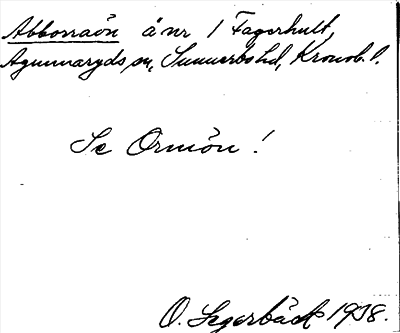 Abborraön å nr 1 Fagerhult,
Agunnaryds sn, Sunnerbo hd, Kronob. l.
Se Ormön!
O. Segerbäck 1938.